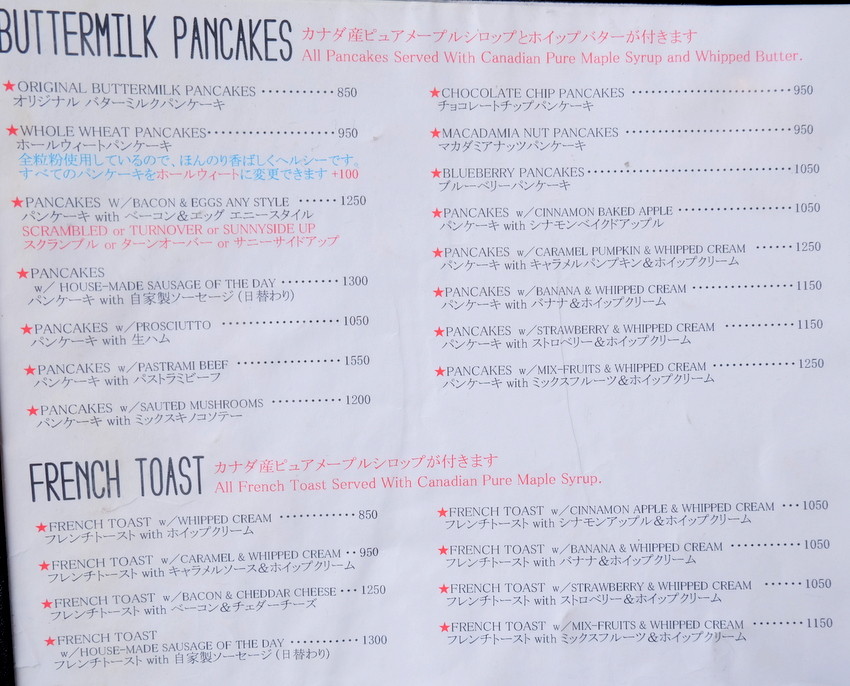 BUTTERMILK PANCAKES
カナダ産ピュアメープルシロップとホイップバターが付きます
All Pancakes Served With Canadian Pure Maple Syrup and Whipped Butter.
★ORIGINAL BUTTERMILK PANCAKES ··········850
オリジナル バターミルクパンケーキ
★WHOLE WHEAT PANCAKES·················950
ホールウィートパンケーキ
全粒粉使用しているので、ほんのり香ばしくヘルシーです。
すべてのパンケーキをホールウィートに変更できます +100
★PANCAKES w/BACON & EGGS ANY STYLE ······1250
パンケーキ with ベーコン&エッグ エニースタイル
SCRAMBLED or TURNOVER or SUNNYSIDE UP
スクランブル or ターンオーバー or サニーサイドアップ
★PANCAKES
w/ HOUSE-MADE SAUSAGE OF THE DAY ·········1300
パンケーキ with 自家製ソーセージ(日替わり)
★PANCAKES w/PROSCIUTTO ···············1050
パンケーキ with 生ハム
★PANCAKES w/PASTRAMI BEEF ·············1550
パンケーキ with パストラミビーフ
★PANCAKES w/SAUTED MUSHROOMS ··········1200
パンケーキ with ミックスキノコソテー
★CHOCOLATE CHIP PANCAKES ·····················950
チョコレートチップパンケーキ
★MACADAMIA NUT PANCAKES ······················950
マカダミアナッツパンケーキ
★BLUEBERRY PANCAKES···························1050
ブルーベリーパンケーキ
★PANCAKES w/CINNAMON BAKED APPLE ···············1050
パンケーキ with シナモンベイクドアップル
★PANCAKES w/CARAMEL PUMPKIN & WHIPPED CREAM ······1250
パンケーキ with キャラメルパンプキン&ホイップクリーム
★PANCAKES w/BANANA & WHIPPED CREAM ··············1150
パンケーキ with バナナ&ホイップクリーム
★PANCAKES w/STRAWBERRY & WHIPPED CREAM ··········1150
パンケーキ with ストロベリー&ホイップクリーム
★PANCAKES w/MIX-FRUITS & WHIPPED CREAM ···········1250
パンケーキ with ミックスフルーツ&ホイップクリーム
FRENCH TOAST
カナダ産ピュアメープルシロップが付きます
All French Toast Served With Canadian Pure Maple Syrup.
★FRENCH TOAST w/WHIPPED CREAM ···········850
フレンチトースト with ホイップクリーム
★FRENCH TOAST w/CARAMEL & WHIPPED CREAM ··950
フレンチトースト with キャラメルソース&ホイップクリーム
★FRENCH TOAST w/BACON & CHEDDAR CHEESE ···1250
フレンチトースト with ベーコン&チェダーチーズ
★FRENCH TOAST
w/HOUSE-MADE SAUSAGE OF THE DAY ···········1300
フレンチトースト with 自家製ソーセージ(日替わり)
★FRENCH TOAST w/CINNAMON APPLE & WHIPPED CREAM ···1050
フレンチトースト with シナモンアップル&ホイップクリーム
★FRENCH TOAST w/BANANA & WHIPPED CREAM ···········1050
フレンチトースト with バナナ&ホイップクリーム
★FRENCH TOAST w/STRAWBERRY & WHIPPED CREAM ······1050
フレンチトースト with ストロベリー&ホイップクリーム
★FRENCH TOAST w/MIX-FRUITS & WHIPPED CREAM ········1150
フレンチトースト with ミックスフルーツ&ホイップクリーム